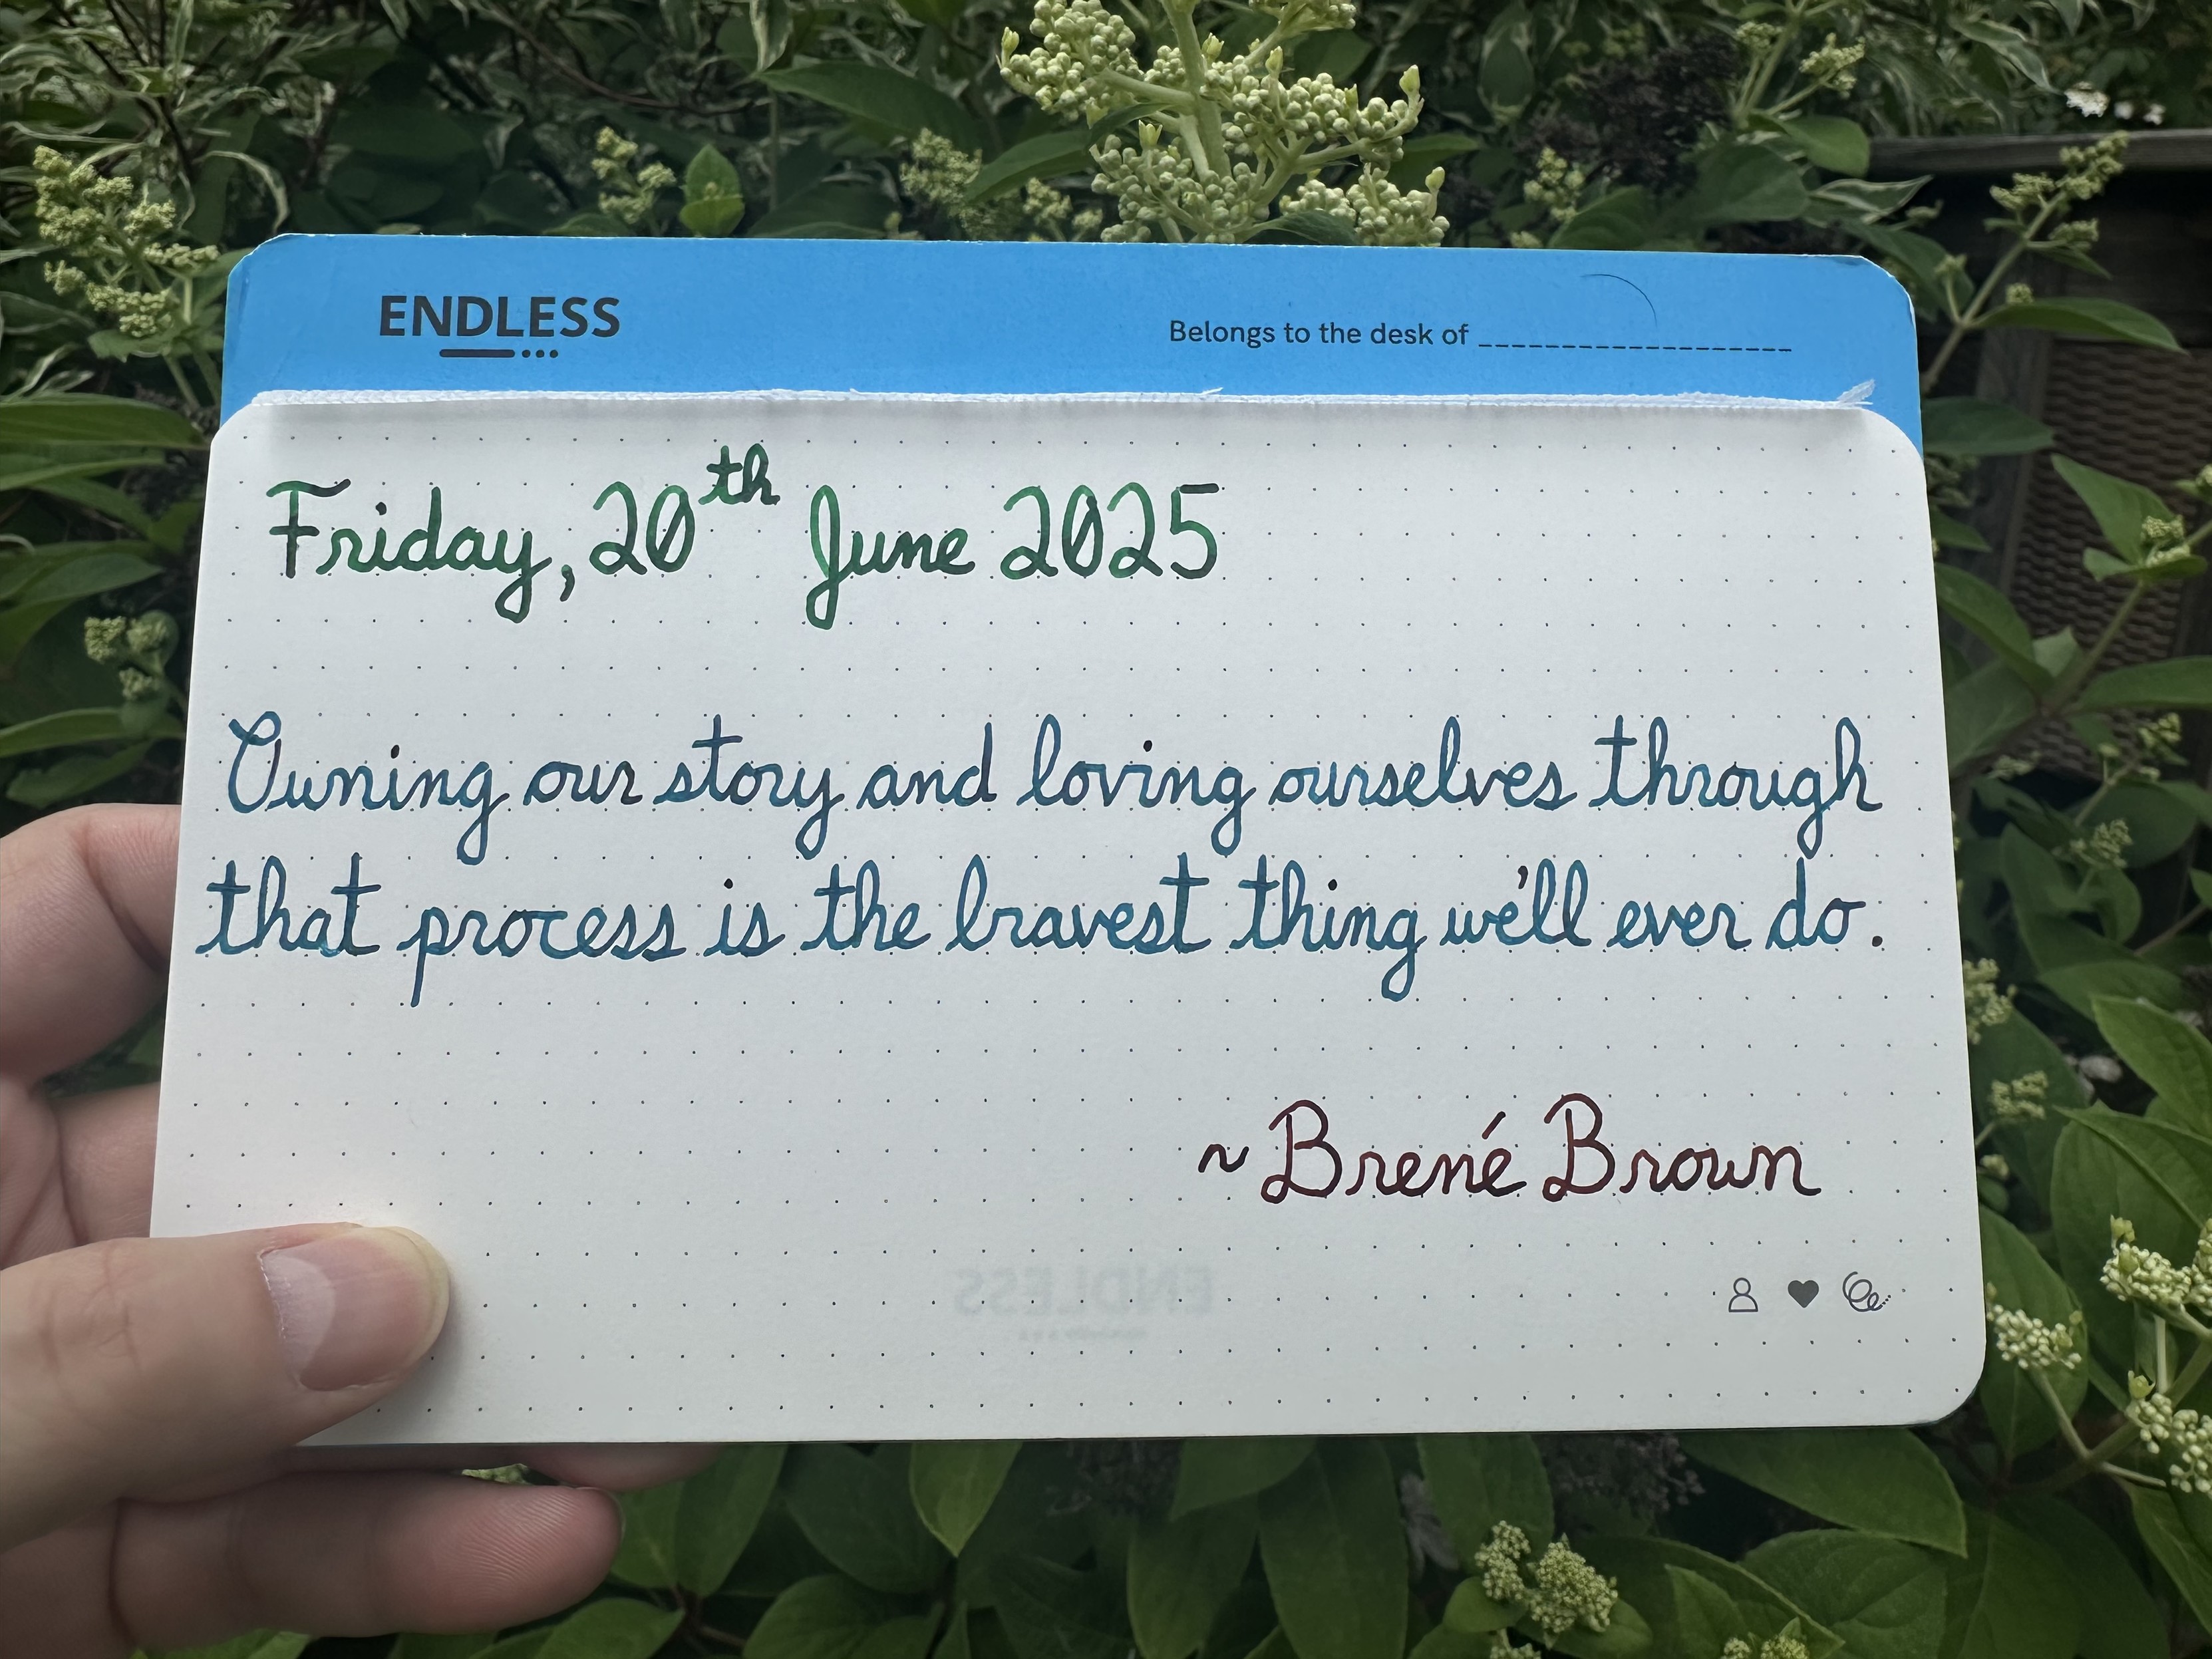 ENDLESS
Belongs to the desk of
Friday, 20th June 2025
Owning our story and loving ourselves through
that process is the bravest thing we'll ever do.
~Brené Brown
ENDLESS